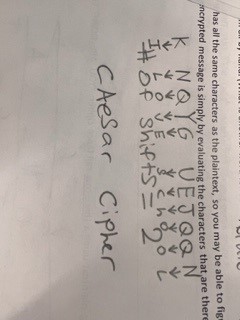 has all the same characters as the plaintext, so you may be able to fig
ncrypted message is simply by evaluating the characters that are there
K NQYG UEJQQN
I LOVE School
# of Shifts = 2
CAesar Cipher